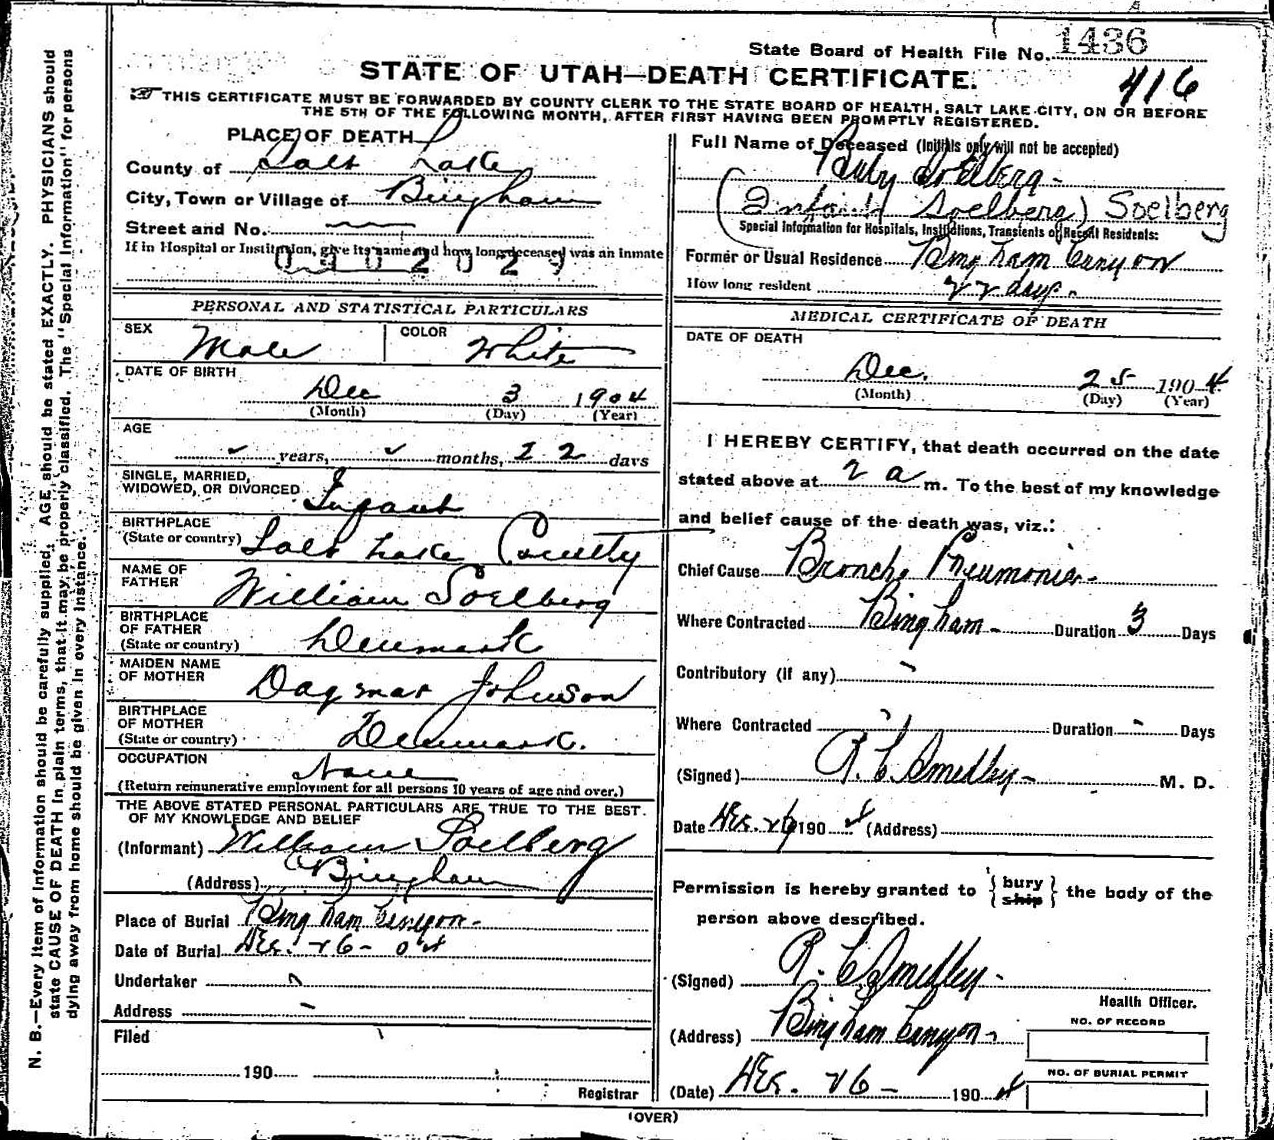 State Board of Health File No. 1436
STATE OF UTAH—DEATH CERTIFICATE.
416
THIS CERTIFICATE MUST BE FORWARDED BY COUNTY CLERK TO THE STATE BOARD OF HEALTH, SALT LAKE CITY, ON OR BEFORE
THE 5TH OF THE FOLLOWING MONTH, AFTER FIRST HAVING BEEN PROMPTLY REGISTERED.
PLACE OF DEATH
County of Salt Lake
City, Town or Village of Bingham
Street and No.
If in Hospital or Institution, give its name and how long deceased was an inmate
0302027
PERSONAL AND STATISTICAL PARTICULARS
SEX Male COLOR White
DATE OF BIRTH
Dec 3 1904
(Month) (Day) (Year)
AGE
years, months, 22 days
SINGLE, MARRIED,
WIDOWED, OR DIVORCED Infant
BIRTHPLACE
(State or country) Salt Lake County
NAME OF
FATHER William Soelberg
BIRTHPLACE
OF FATHER
(State or country) Denmark
MAIDEN NAME
OF MOTHER Dagmar Johnson
BIRTHPLACE
OF MOTHER
(State or country) Denmark.
OCCUPATION None
(Return remunerative employment for all persons 10 years of age and over.)
THE ABOVE STATED PERSONAL PARTICULARS ARE TRUE TO THE BEST
OF MY KNOWLEDGE AND BELIEF
(Informant) William Soelberg
(Address) Bingham
Place of Burial Bingham Canyon-
Date of Burial Dec. 26 - 04
Undertaker
Address
Filed
190
Registrar
Full Name of Deceased (Initials only will not be accepted)
Soelberg
(Infant Soelberg) Soelberg
Special Information for Hospitals, Institutions, Transients or Recent Residents:
Former or Usual Residence Bingham Canyon
How long resident 22 days.
MEDICAL CERTIFICATE OF DEATH
DATE OF DEATH
Dec. 25 1904
(Month) (Day) (Year)
I HEREBY CERTIFY, that death occurred on the date
stated above at 2 a m. To the best of my knowledge
and belief cause of the death was, viz.:
Chief Cause Broncho Pneumonia-
Where Contracted Bingham- Duration 3 Days
Contributory (if any) -
Where Contracted Duration - Days
(Signed) R. C. Smedley- M. D.
Date Dec. 26 1904 (Address)
Permission is hereby granted to { bury ship } the body of the
person above described.
(Signed) R. C. Smedley-
Health Officer.
(Address) Bingham Canyon-
NO. OF RECORD
NO. OF BURIAL PERMIT
(Date) Dec. 26 - 1904
(OVER)
N. B.—Every item of Information should be carefully supplied. AGE should be stated EXACTLY. PHYSICIANS should
state CAUSE OF DEATH in plain terms, that it may be properly classified. The "Special Information" for persons
dying away from home should be given in every instance.